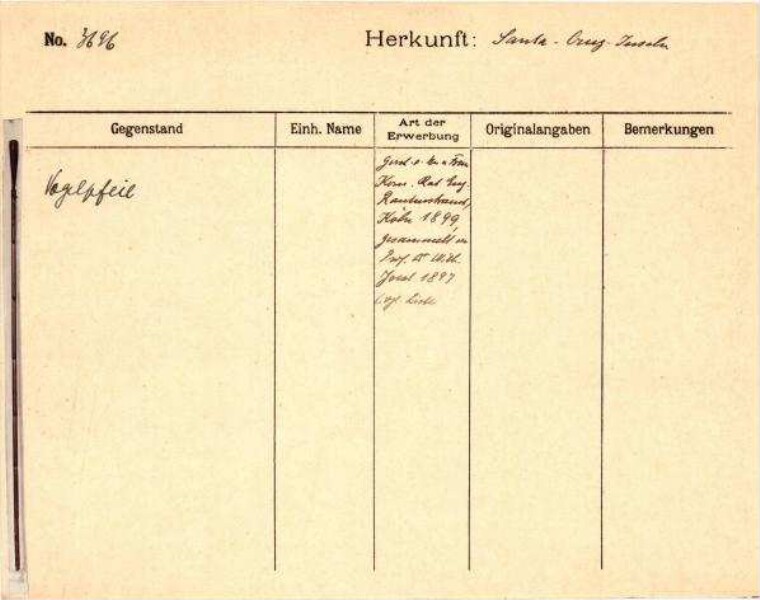 No. 3696
Herkunft: Santa-Cruz-Inseln
Gegenstand
Einh. Name
Art der Erwerbung
Originalangaben
Bemerkungen
Vogelpfeil
Gesch. v. u. Frau
Kom. Rat Eug.
Rautenstrauch,
Köln 1899,
gesammelt v.
Prof. Dr Wilh.
Joest 1897
(vgl. Liste